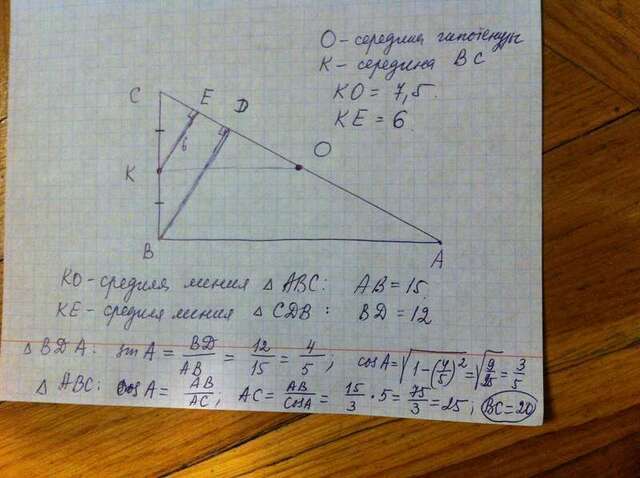 O - середина гипотенузы
K - середина BC
KO = 7,5.
KE = 6
C
E
D
6
O
K
B
A
KO - средняя линия △ ABC: AB = 15
KE - средняя линия △ CDB: BD = 12
△ BDA: sin A = BD/AB = 12/15 = 4/5; cos A = √(1-(4/5)²) = √(9/25) = 3/5
△ ABC: cos A = AB/AC; AC = AB/cos A = 15/3 · 5 = 75/3 = 25; BC = 20